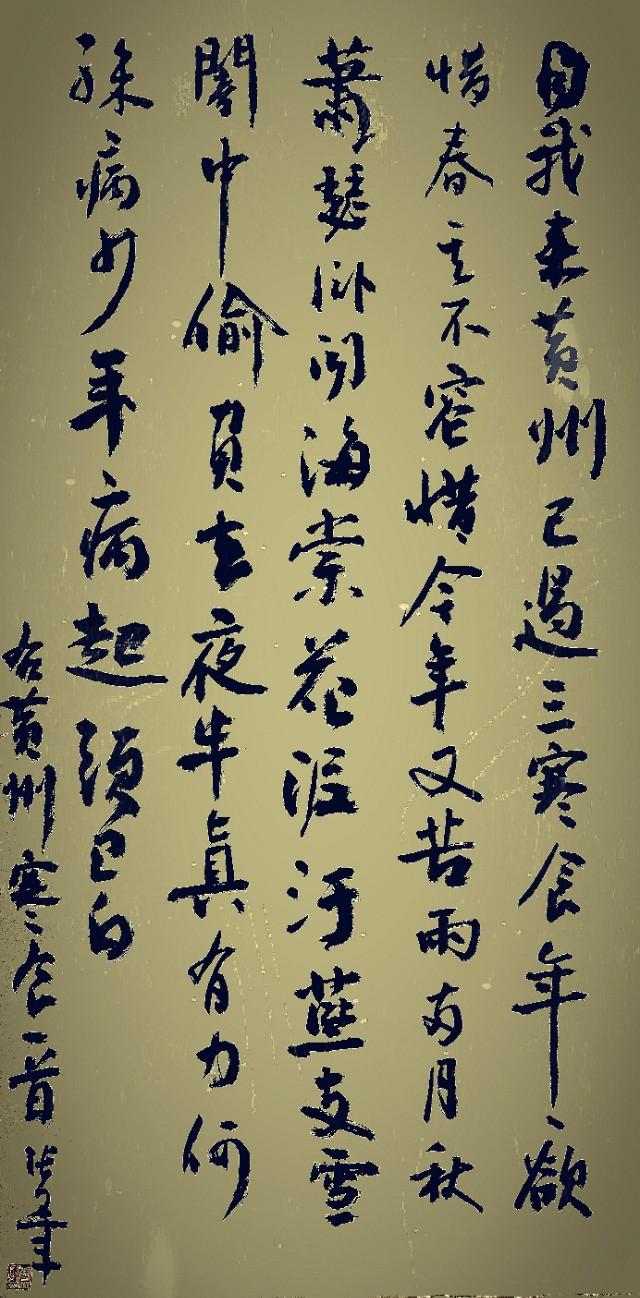 自我来黄州已過三寒食年〻欲
惜春去不容惜今年又苦雨两月秋
蕭瑟卧聞海棠花泥汙燕支雪
闇中偷負去夜半真有力何
殊病少年病起須已白
右黄州寒食一首